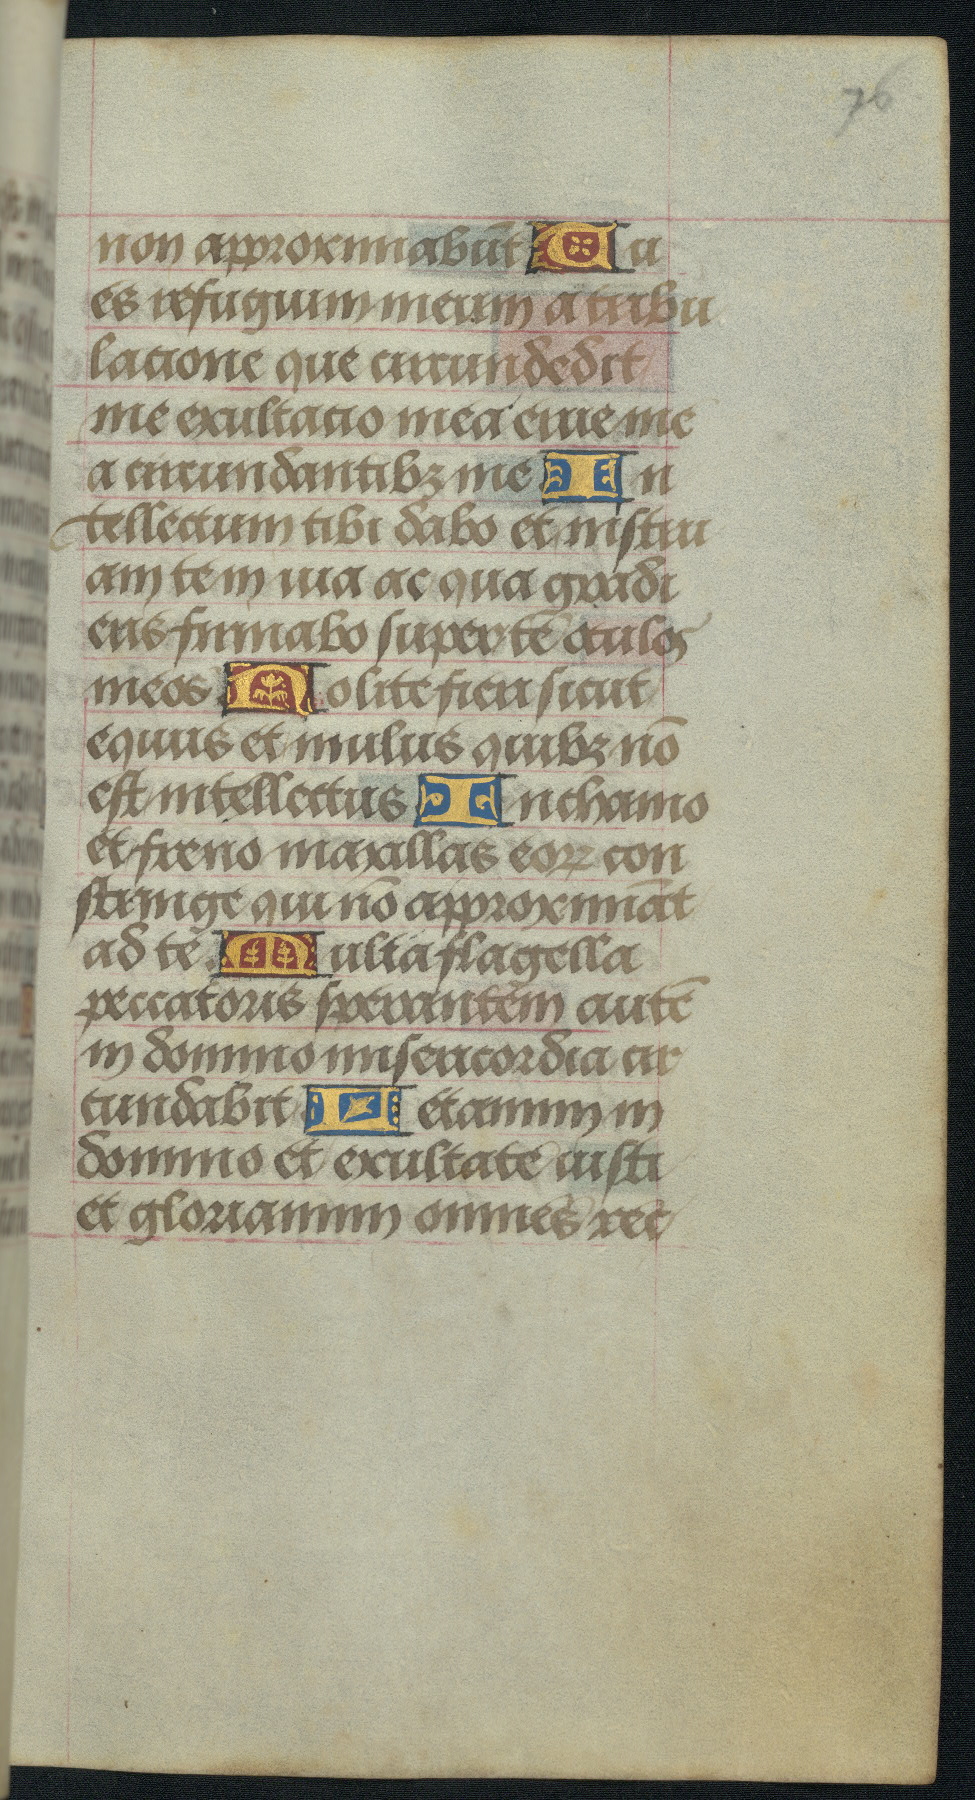 76
non approximabūt Tu
es refugium meum a tribu
lacione que circundedit
me exultacio mea erue me
a circundantibꝫ me In
tellectum tibi dabo et instru
am te in via ac qua gradi
eris firmabo super te oculos
meos Nolite fieri sicut
equus et mulus quibꝫ nō
est intellectus In chamo
et freno maxillas eoꝝ con
stringe qui nō approximāt
ad te Multa flagella
peccatoris sperantem autē
in domino misericordia cir
cundabit Letamini in
domino et exultate iusti
et gloriamini omnes rec